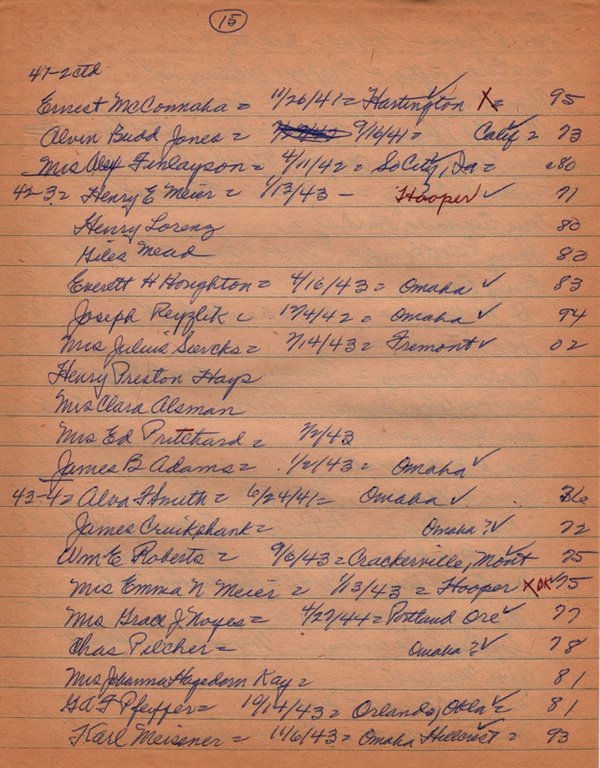 15
41-2ctd
Ernest McConnaha = 11/26/41 = Hartington ✓ X = 95
Alvin Budd Jones = 9/16/41 = Calif ✓ = 73
Mrs Alex Finlayson = 4/11/42 = So City, Ia = e80
42-3 = Henry E Meier = 1/13/43 - Hooper ✓ 71
Henry Lorenz 80
Giles Mead 80
Everett H Houghton = 4/16/43 = Omaha ✓ 83
Joseph = 12/4/42 = Omaha ✓ 94
Mrs Julius Siercks = 7/14/43 = Fremont ✓ 02
Henry Preston Hays
Mrs Clara Alsman
Mrs Ed Pritchard = 7/2/43
James B Adams = 1/2/43 = Omaha ✓
43-4 = Alva F Smith = 6/24/41 = Omaha ✓
James Cruikshank = Omaha ? ✓ 72
Wm E Roberts = 9/6/43 = Crackerville, Mont ✓ 75
Mrs Emma N Meier = 1/13/43 = Hooper X OK ✓ 75
Mrs Grace J Noyes = 4/27/44 = Portland Ore ✓ 77
Chas Pilcher = Omaha ? ✓ 78
Mrs Johanna Hagedorn Kay = 81
F Pfeiffer = 10/14/43 = Orlando, Okla ✓ = 81
Karl Meissner = 11/6/43 = Omaha Hillcrest ✓ = 93